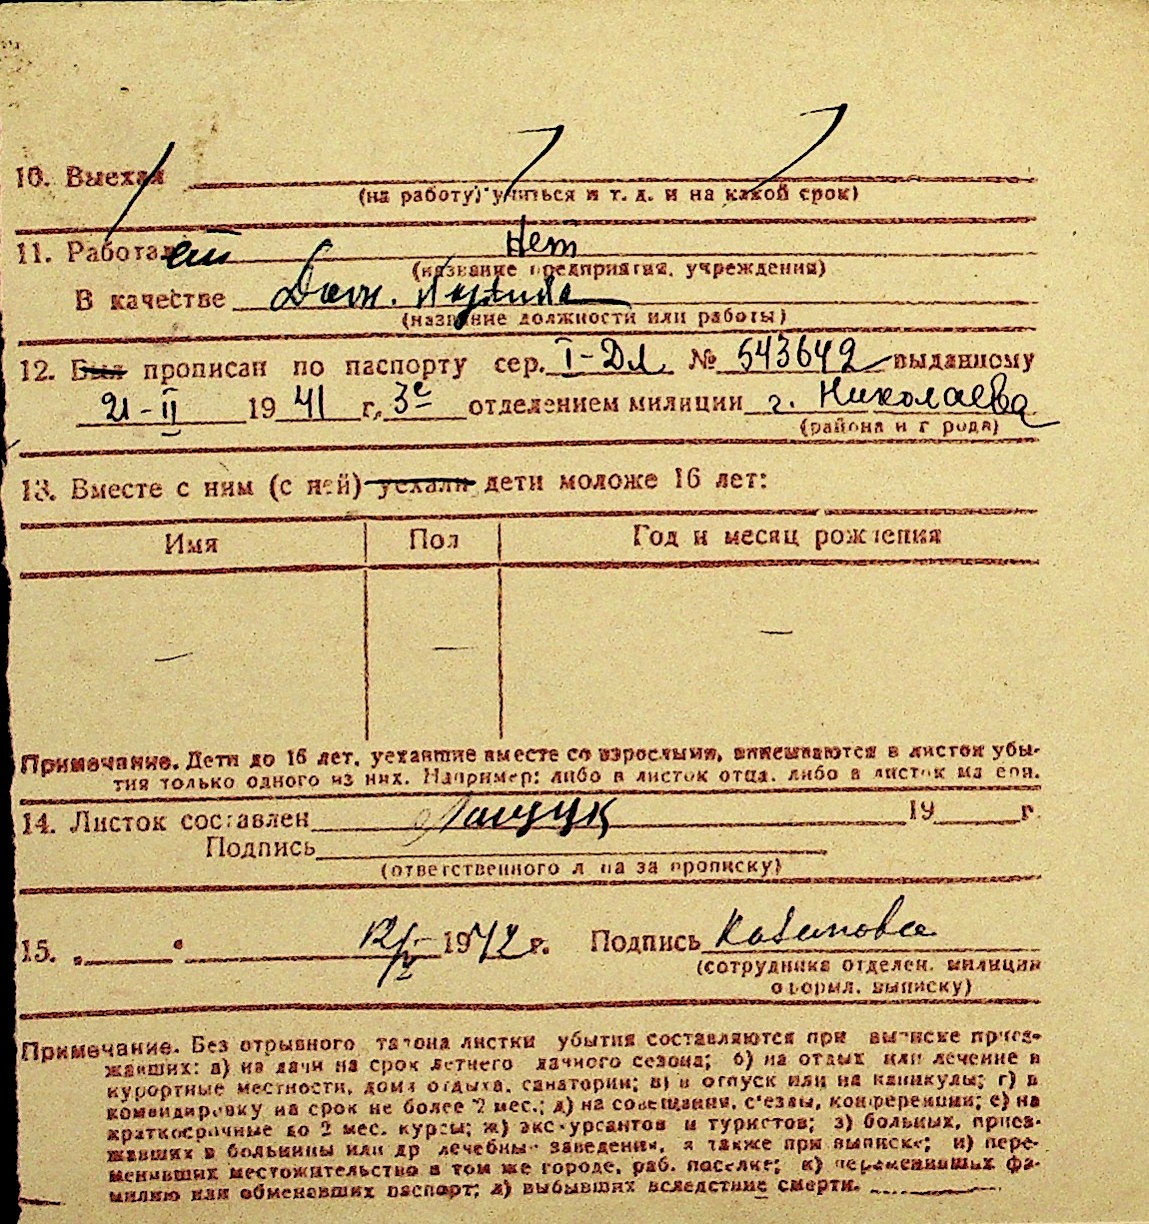 10. Выехал
(на работу, учиться и т. д. и на какой срок)
11. Работает Нет
(название предприятия, учреждения)
В качестве Дом.
(название должности или работы)
12. Был прописан по паспорту сер. I-Дл № 543649 выданному
21-II 1941 г., 3е отделением милиции г. Николаева
(района и города)
13. Вместе с ним (с ней) уехали дети моложе 16 лет:
Имя Пол Год и месяц рождения
— — —
Примечание. Дети до 16 лет, уехавшие вместе со взрослыми, вписываются в листок убы-
тия только одного из них. Например: либо в листок отца, либо в листок матери.
14. Листок составлен Лащук 19 г.
Подпись
(ответственного лица за прописку)
15. „ “ 12/IV 1942 г. Подпись
(сотрудника отделен. милиции
оформл. выписку)
Примечание. Без отрывного талона листки убытия составляются при выписке приез-
жавших: а) на дачи на срок летнего дачного сезона; б) на отдых или лечение в
курортные местности, дома отдыха, санатории; в) в отпуск или на каникулы; г) в
командировку на срок не более 2 мес.; д) на совещания, с'езды, конференции; е) на
краткосрочные до 2 мес. курсы; ж) экскурсантов и туристов; з) больных, приез-
жавших в больницы или др лечебные заведения, а также при выписке; и) пере-
менивших местожительство в том же городе, раб. поселке; к) переменивших фа-
милию или обменавших паспорт; л) выбывших вследствие смерти.